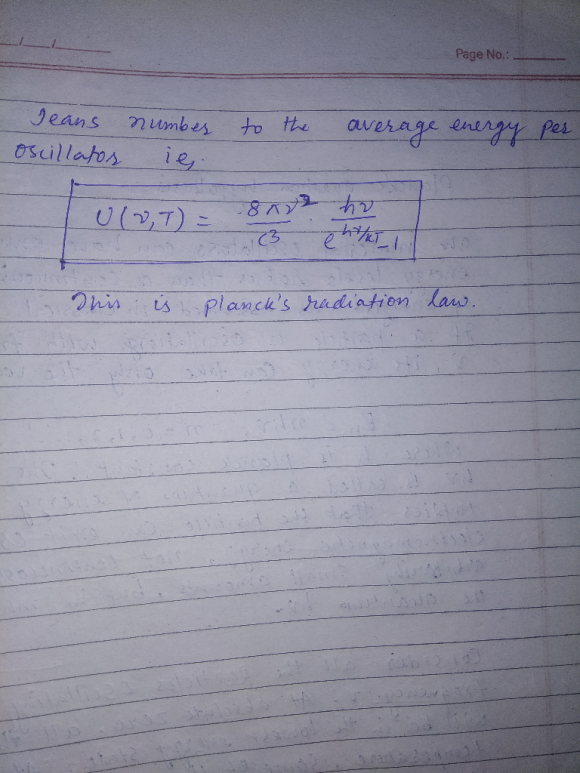 Page No.:
Jeans number to the average energy per
oscillator ie,
U(ν,T) = 8πν²/c3 · hν/e^hν/kT-1
This is planck's radiation law.